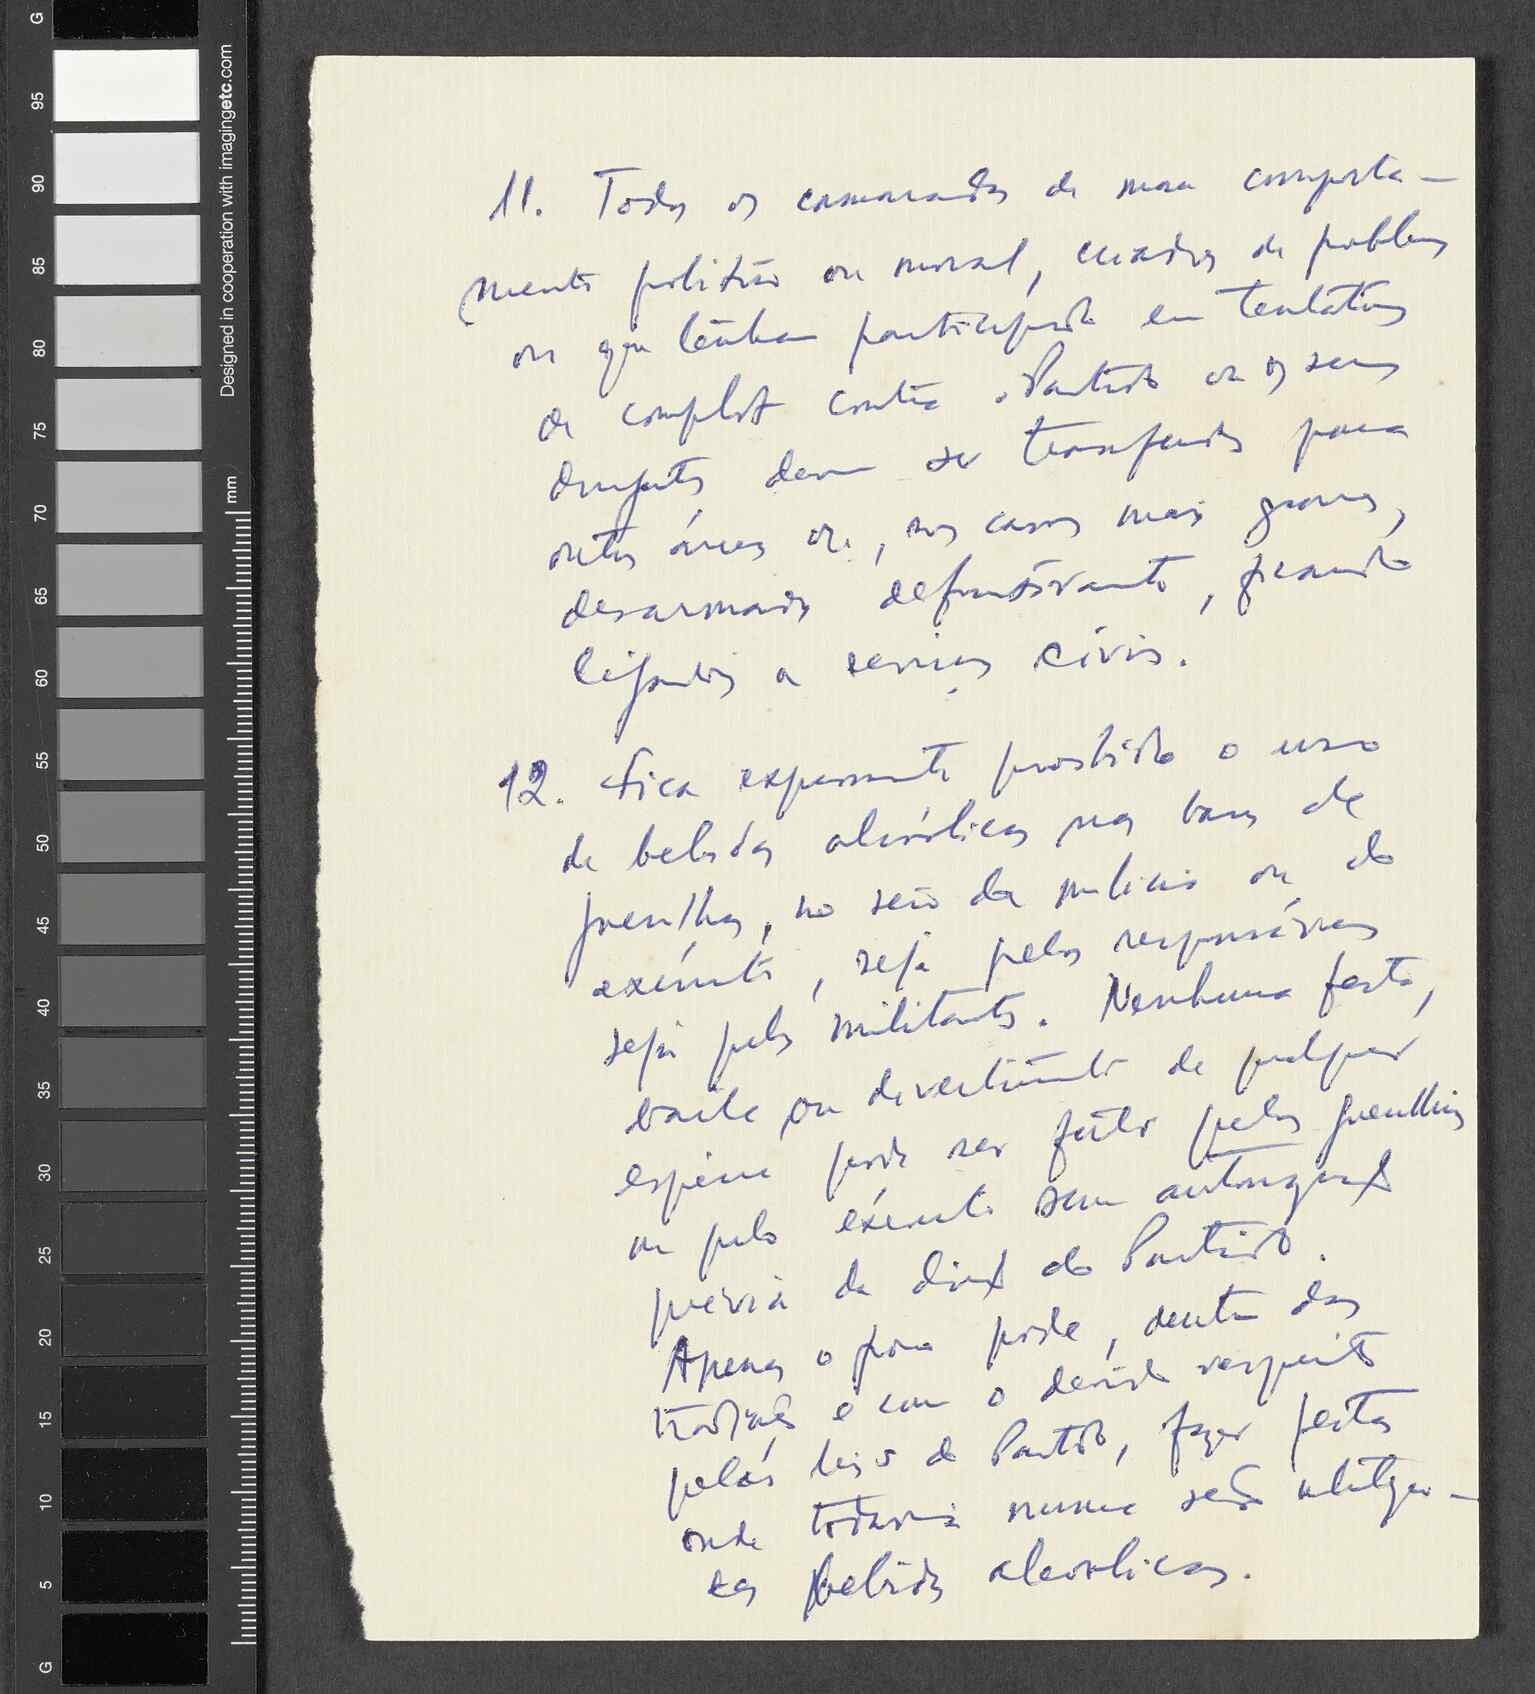 11. Todos os camaradas de mau comporta-
mento político ou moral, criadores de problemas
ou que tenham participado em tentativas
de complot contra o Partido ou os seus
dirigentes devem ser transferidos para
outras áreas ou, nos casos mais graves,
desarmados definitivamente, ficando
ligados a serviços civis.
12. Fica expressamente proibido o uso
de bebidas alcoólicas nas bases de
guerrilha, no seio da milícia ou do
exército, seja pelos responsáveis
seja pelos militantes. Nenhuma festa,
baile ou divertimento de qualquer
espécie pode ser feito pelas guerrilhas
ou pelo exército sem autorização
prévia da direcção do Partido.
Apenas o povo pode, dentro das
tradições e com o devido respeito
pelas leis do Partido, fazer festas
onde todavia nunca serão utiliza-
das bebidas alcoolicas.
G
95
90
85
80
75
70
65
60
55
50
45
40
35
30
25
20
15
10
5
G
Designed in cooperation with imagingetc.com
mm